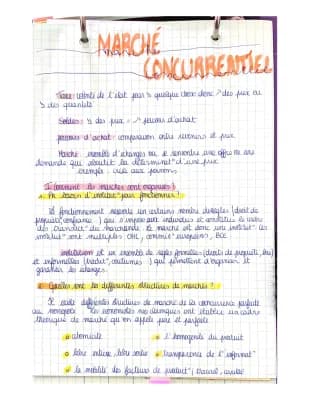 MARCHÉ
CONCURRENTIEL
Taxe : volonté de l'état pour ↘ quelque chose donc ↗ des prix ou
↘ des quantités
Soldes : ↘ des prix = ↗ pouvoir d'achat
pouvoir d'achat : comparaison entre revenus et prix
Marché : ensemble d'échanges où se rencontre une offre et une
demande qui aboutit à la déterminat° d'un prix
exemple : criée aux poissons
I. Comment les marchés sont organisés ?
1. Pk besoin d'institut° pour fonctionner ?
Le fonctionnement nécessite un certains nombre de règles (droit de
propriété, confiance) qui s'imposent aux individus et constitue le cadre
des transact° du marchande. Le marché est donc une institut°. Les
institut° sont multiples : OMC, commiss° européenne, BCE
institution est un ensemble de règles formelles (droits de propriété, loi)
et informelles (tradit°, coutumes) qui permettent d'organiser et
garantir les échanges.
2. Quelles sont les différentes structures de marchés ?
Il existe différentes structures de marché de la concurrence parfaite
au monopole. Les économistes néo-classiques ont établie un cadre
théorique de marché qu'on appelle pure et parfaite
atomicité
l'homogénéité du produit
libre entrée, libre sortie
transparence de l'informat°
la mobilité des facteurs de product° : travail, capital